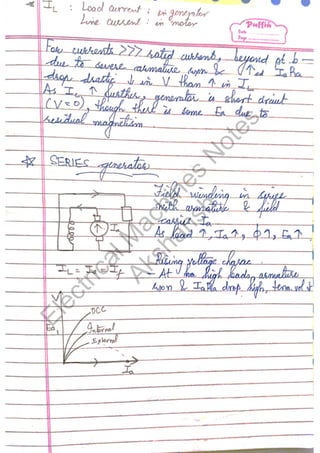 * IL : Load current : in generator
Line current : in motor
Puffin
Date
Page
For currents >>> rated currents, beyond pt. b –
due to severe armature rxn & ↑ed IaRa
drop drastic ↓ in V than ↑ in IL
As IL ↑ further, generator is short circuit
(V=0), though there is some Ea due to
residual magnetism
* SERIES generator
Field winding in series
with armature & field
carries Ia
As load ↑, Ia ↑, ϕ ↑, Ea ↑
IL = Ia = If
Rising voltage charac.
- At high loads, armature
rxn & IaRa drop high, term. vol ↓
OCC
Internal
External
Ea
Ia
Electrical Machines Notes